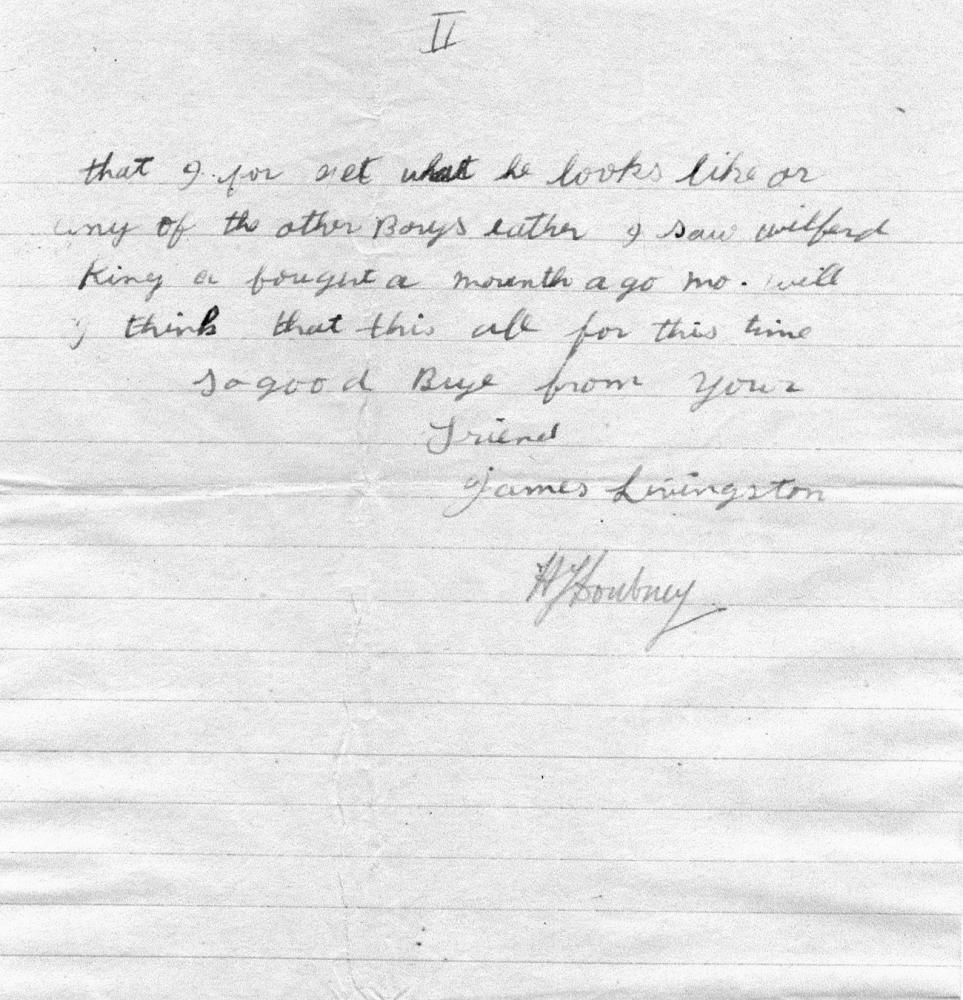 II
that I for get what he looks like or
any of the other Boys eather I saw wilferd
King a bought a mounth ago mo. will
I think that this all for this time
so good Buye from your
Friend
James Livingston